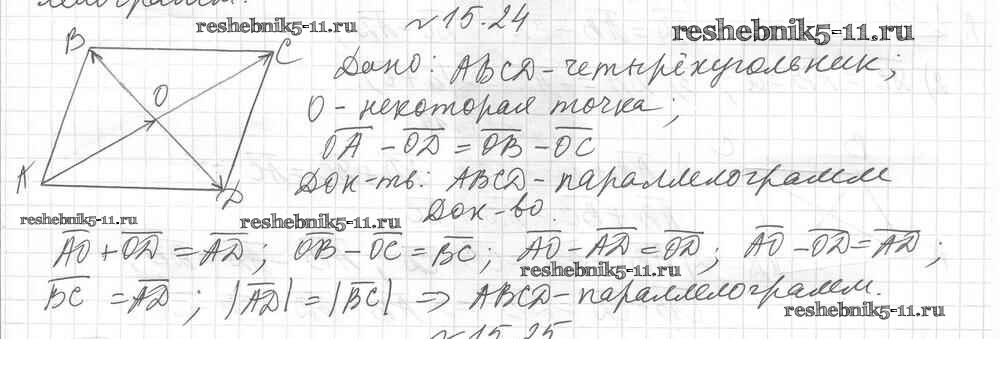 лелограмм.
reshebnik5-11.ru
№15.24
reshebnik5-11.ru
B
C
O
A
D
Дано: ABCD - четырёхугольник;
O - некоторая точка;
OA - OD = OB - OC
Док-ть: ABCD - параллелограмм
Док-во.
reshebnik5-11.ru
reshebnik5-11.ru
AO + OD = AD; OB - OC = BC; AO - AD = OD; AO - OD = AD;
reshebnik5-11.ru
BC = AD; |AD| = |BC| => ABCD - параллелограмм.
reshebnik5-11.ru
№15.25